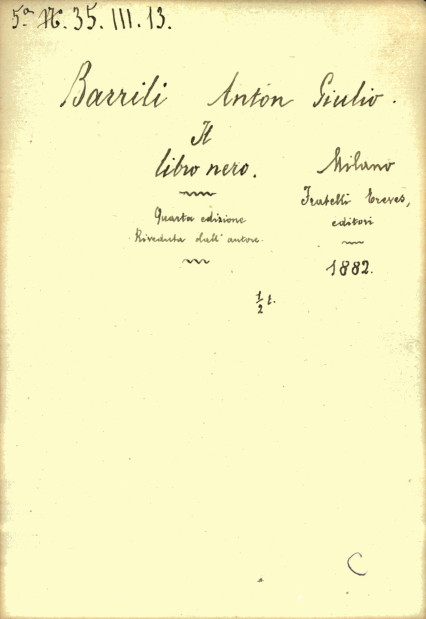 5ª N. 35. III. 13.
Barrili Anton Giulio.
Il
libro nero.
Quarta edizione
Riveduta dall'autore.
Milano
Fratelli Treves,
editori
1882.
1/2 t.
C